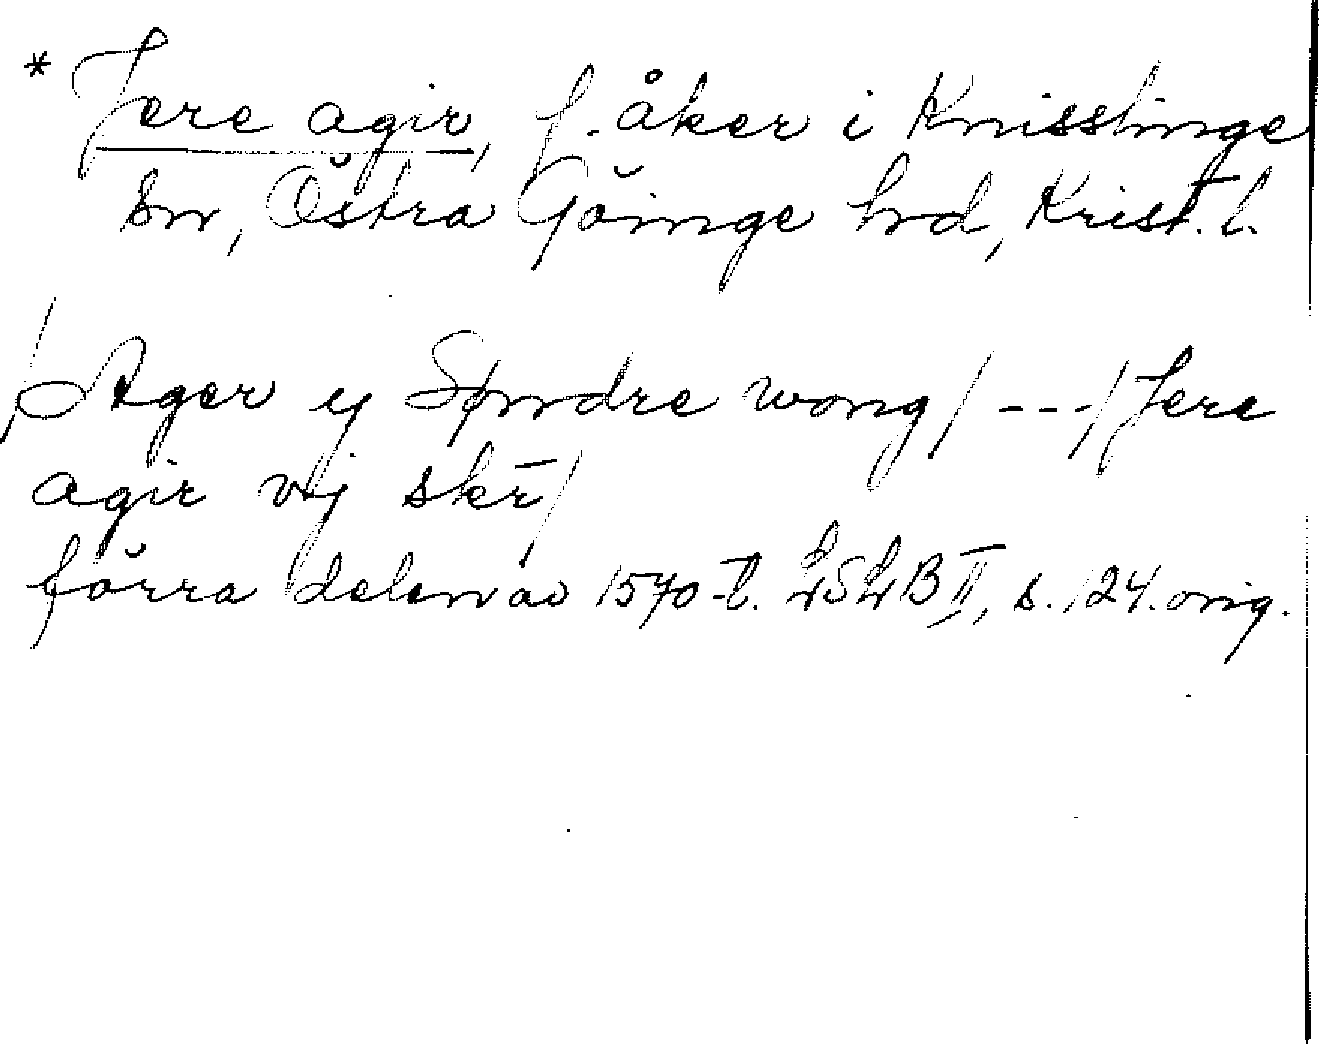 * Jere agir, f. åker i Knisslinge
sn, Östra Göinge hrd, Krist. l.
/Ager ij Søndre wong/ --- / Jere
agir vij skr̄/
förra delen av 1570-t. LSLB II, s. 124. orig.